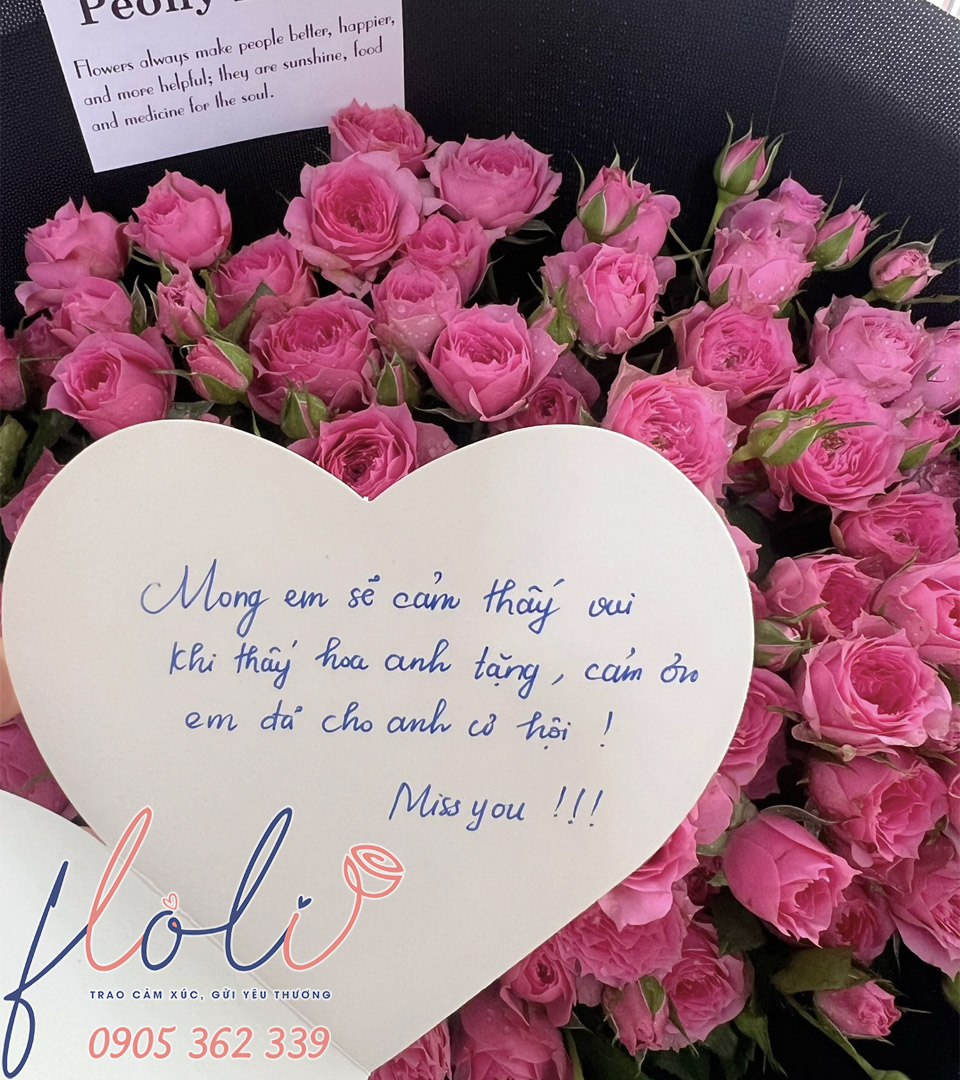 Flowers always make people better, happier,
and more helpful; they are sunshine, food
and medicine for the soul.
Mong em sẽ cảm thấy vui
khi thấy hoa anh tặng, cảm ơn
em đã cho anh cơ hội !
Miss you !!!
floli
TRAO CẢM XÚC, GỬI YÊU THƯƠNG
0905 362 339